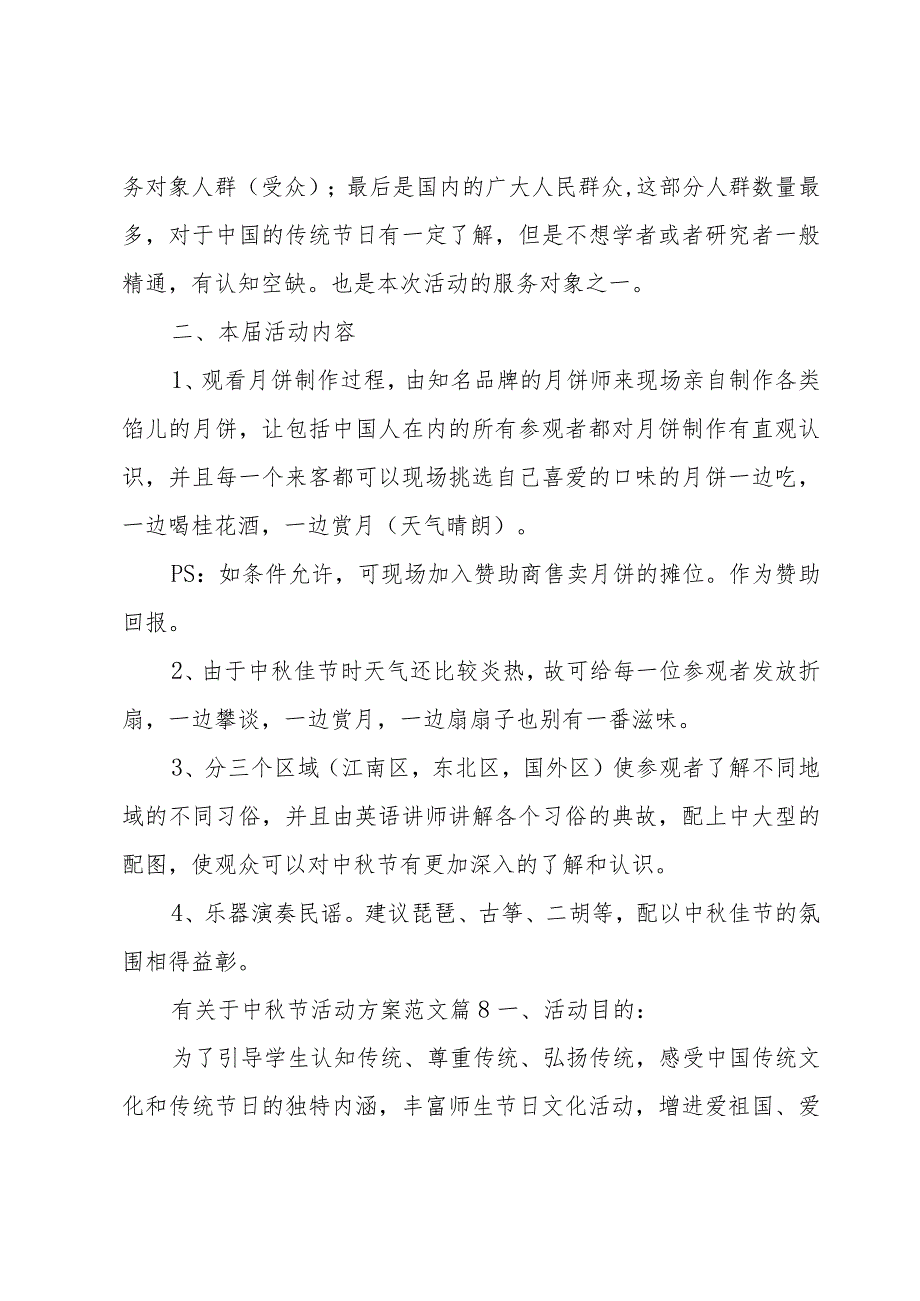 务对象人群（受众）；最后是国内的广大人民群众,这部分人群数量最
多，对于中国的传统节日有一定了解，但是不想学者或者研究者一般
精通，有认知空缺。也是本次活动的服务对象之一。
二、本届活动内容
1、观看月饼制作过程，由知名品牌的月饼师来现场亲自制作各类
馅儿的月饼，让包括中国人在内的所有参观者都对月饼制作有直观认
识，并且每一个来客都可以现场挑选自己喜爱的口味的月饼一边吃，
一边喝桂花酒，一边赏月（天气晴朗）。
PS：如条件允许，可现场加入赞助商售卖月饼的摊位。作为赞助
回报。
2、由于中秋佳节时天气还比较炎热,故可给每一位参观者发放折
扇，一边攀谈，一边赏月，一边扇扇子也别有一番滋味。
3、分三个区域（江南区，东北区，国外区）使参观者了解不同地
域的不同习俗，并且由英语讲师讲解各个习俗的典故，配上中大型的
配图，使观众可以对中秋节有更加深入的了解和认识。
4、乐器演奏民谣。建议琵琶、古筝、二胡等，配以中秋佳节的氛
围相得益彰。
有关于中秋节活动方案范文篇8 一、活动目的：
为了引导学生认知传统、尊重传统、弘扬传统，感受中国传统文
化和传统节日的独特内涵，丰富师生节日文化活动，增进爱祖国、爱